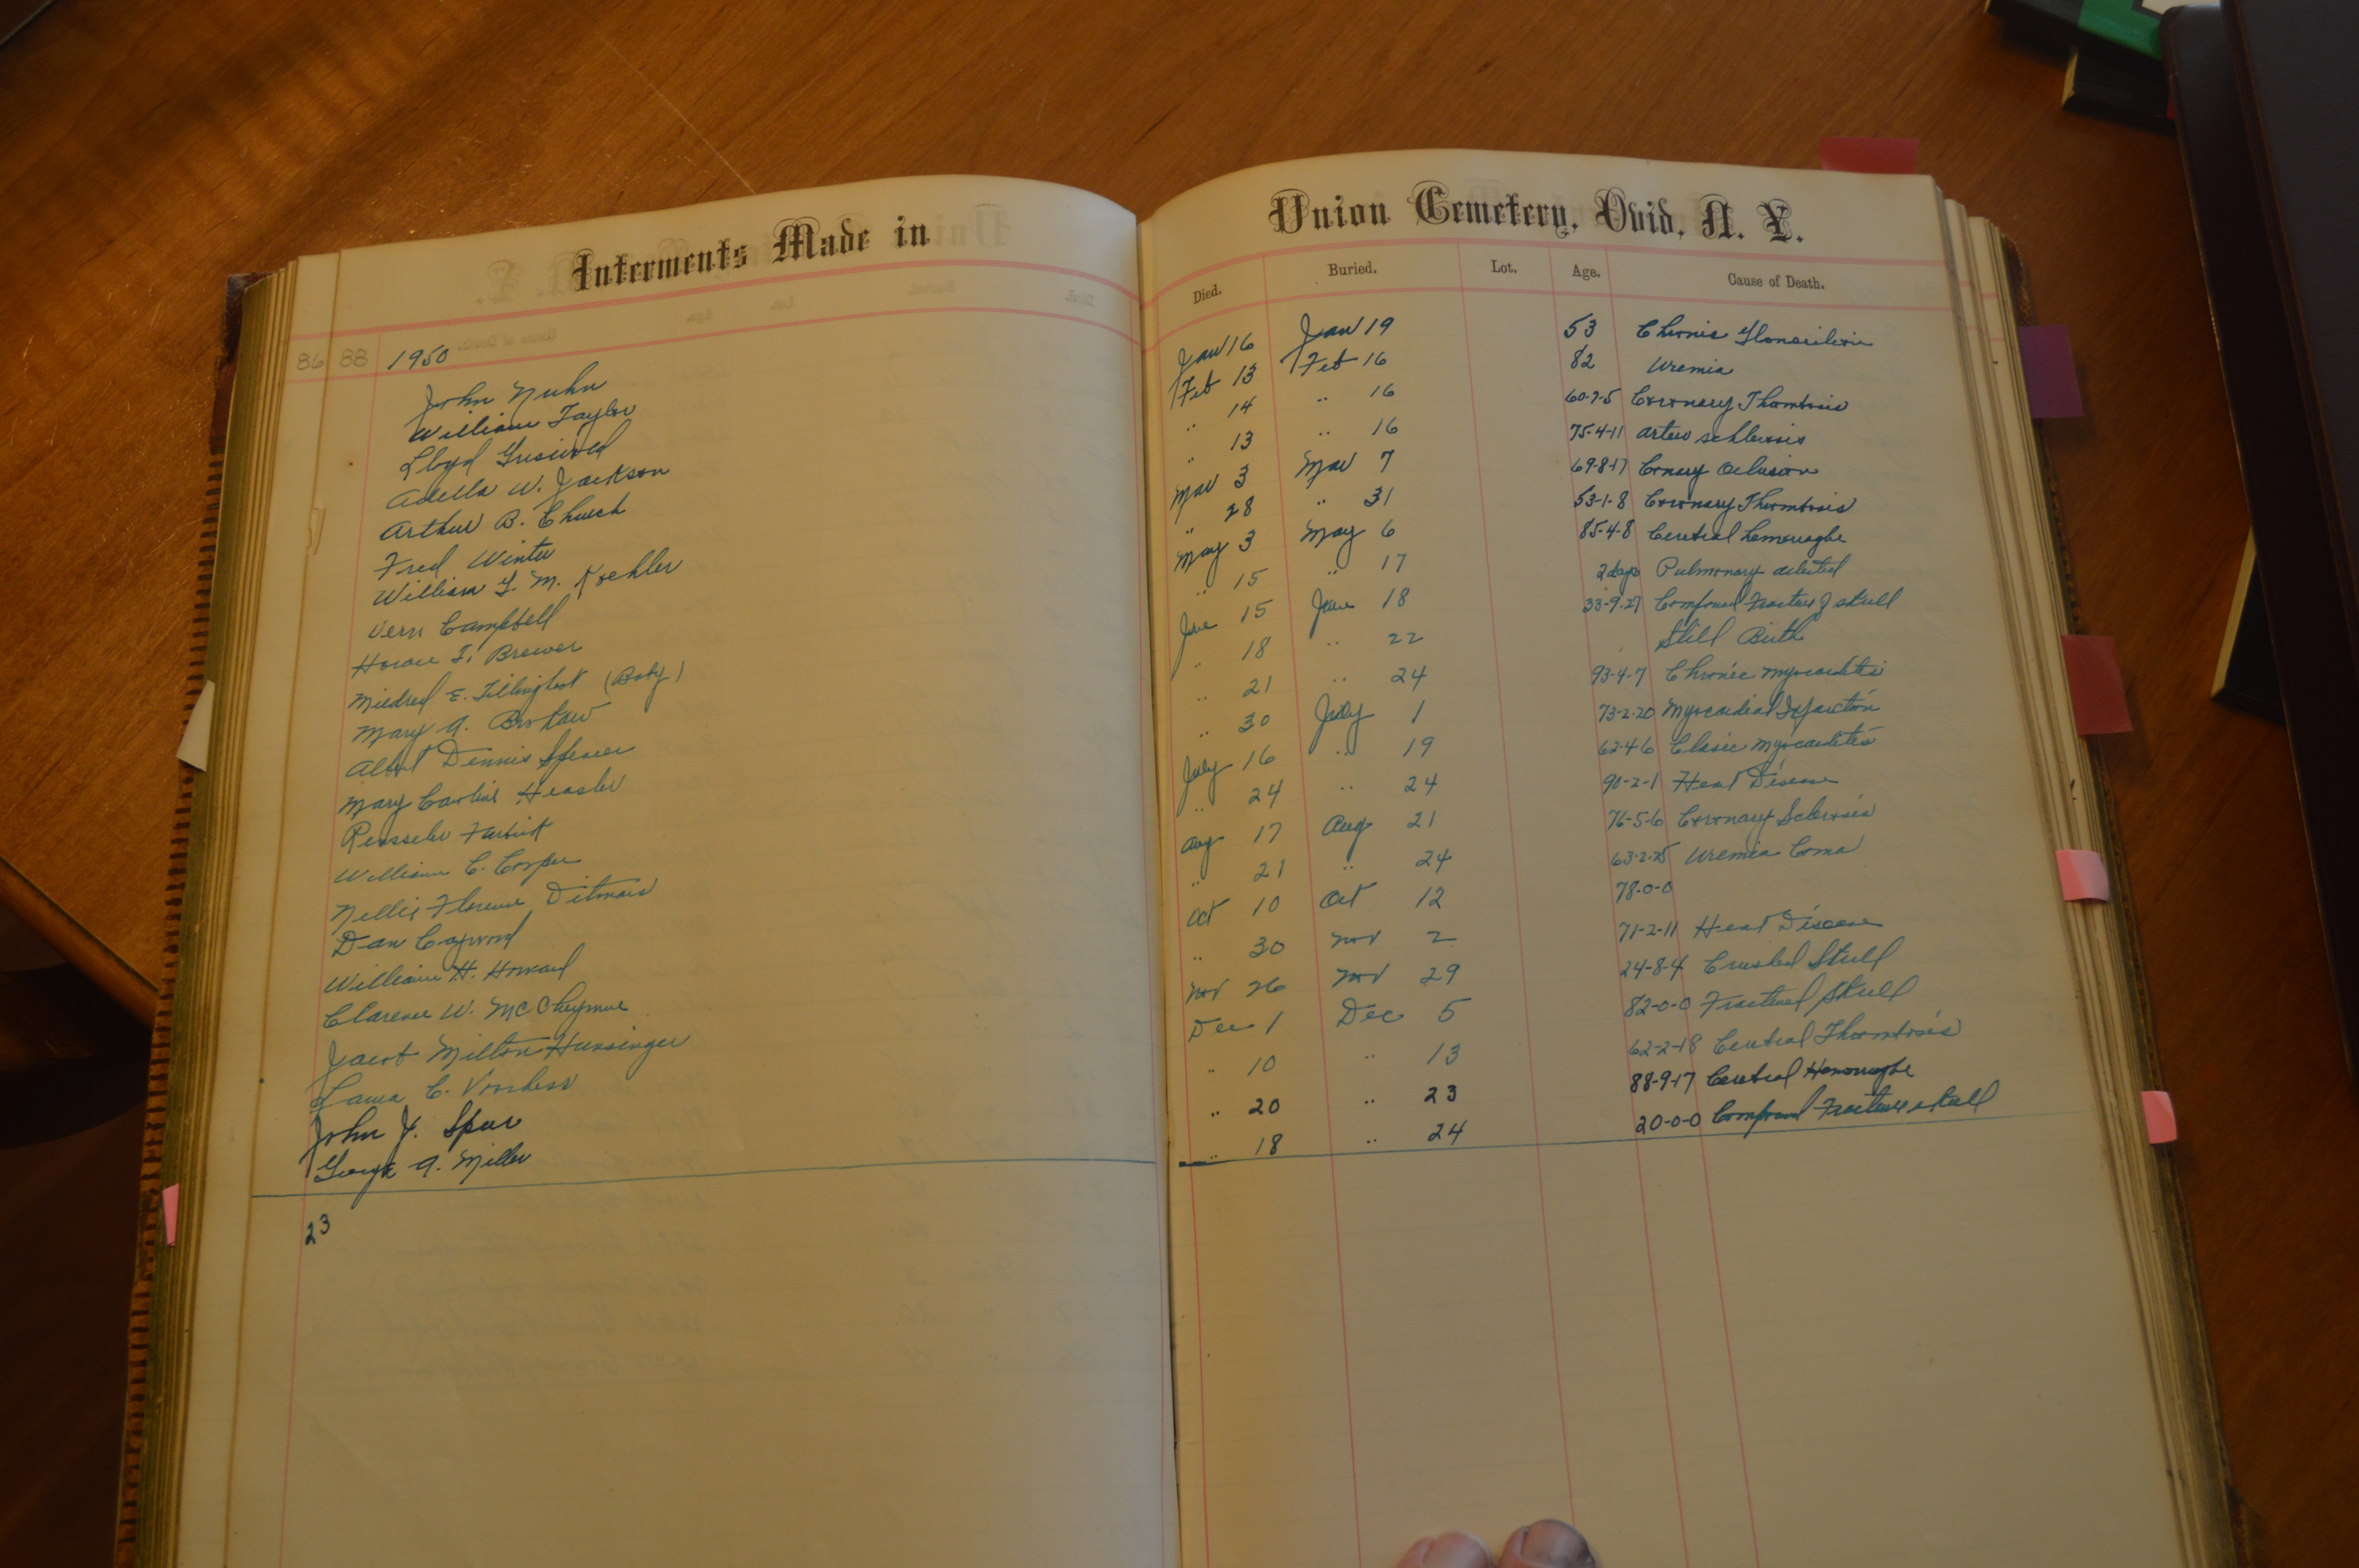 Interments Made in
86 88 1950
John Nuhn
William Taylor
Lloyd Griswold
Adella W. Jackson
Arthur B. Church
Fred Winter
William G. M. Koehler
Vern Campbell
Horace F. Brewer
Mildred E. Tillinghast (Baby)
Mary A. Brokaw
Albert Dennis Spencer
Mary Caroline Heasler
William C. Cooper
Nellie Florence Ditmars
Dan Caywood
William H. Howard
Clarence W. McCheymue
Jacob Milton Hunsinger
Laura C. Voorhess
John J. Spear
George A. Miller
23
Union Cemetery, Ovid, N. Y.
Died. Buried. Lot. Age. Cause of Death.
Jan 16 Jan 19 53 Chronic
Feb 13 Feb 16 82 Uremia
" 14 " 16 60-7-5 Coronary Thombosis
" 13 " 16 75-4-11 arterio schlerosis
Mar 3 Mar 7 69-8-17 Cornary Oclusion
" 28 " 31 53-1-8 Coronary Thrombosis
May 3 May 6 85-4-8 Cerebral hemorraghe
" 15 " 17 2 days Pulmonary
June 15 June 18 33-9-27 Compound Fracture of skull
" 18 " 22 Still Birth
" 21 " 24 93-4-7 Chronic Myocarditis
" 30 July 1 73-2-20 Myocardial Infarction
July 16 " 19 62-4-6 Myocarditis
" 24 " 24 90-2-1 Heart Disease
Aug 17 Aug 21 76-5-6 Coronary Sclerosis
" 21 " 24 63-2-25 Uremia Coma
Oct 10 Oct 12 78-0-0
" 30 Nov 2 71-2-11 Heart Disease
Nov 26 Nov 29 24-8-4 Crushed Skull
Dec 1 Dec 5 82-0-0 Fractured Skull
" 10 " 13 62-2-18 Cerebral Thombosis
" 20 " 23 88-9-17 Cerebral Hemorraghe
" 18 " 24 20-0-0 Compound Fracture skull